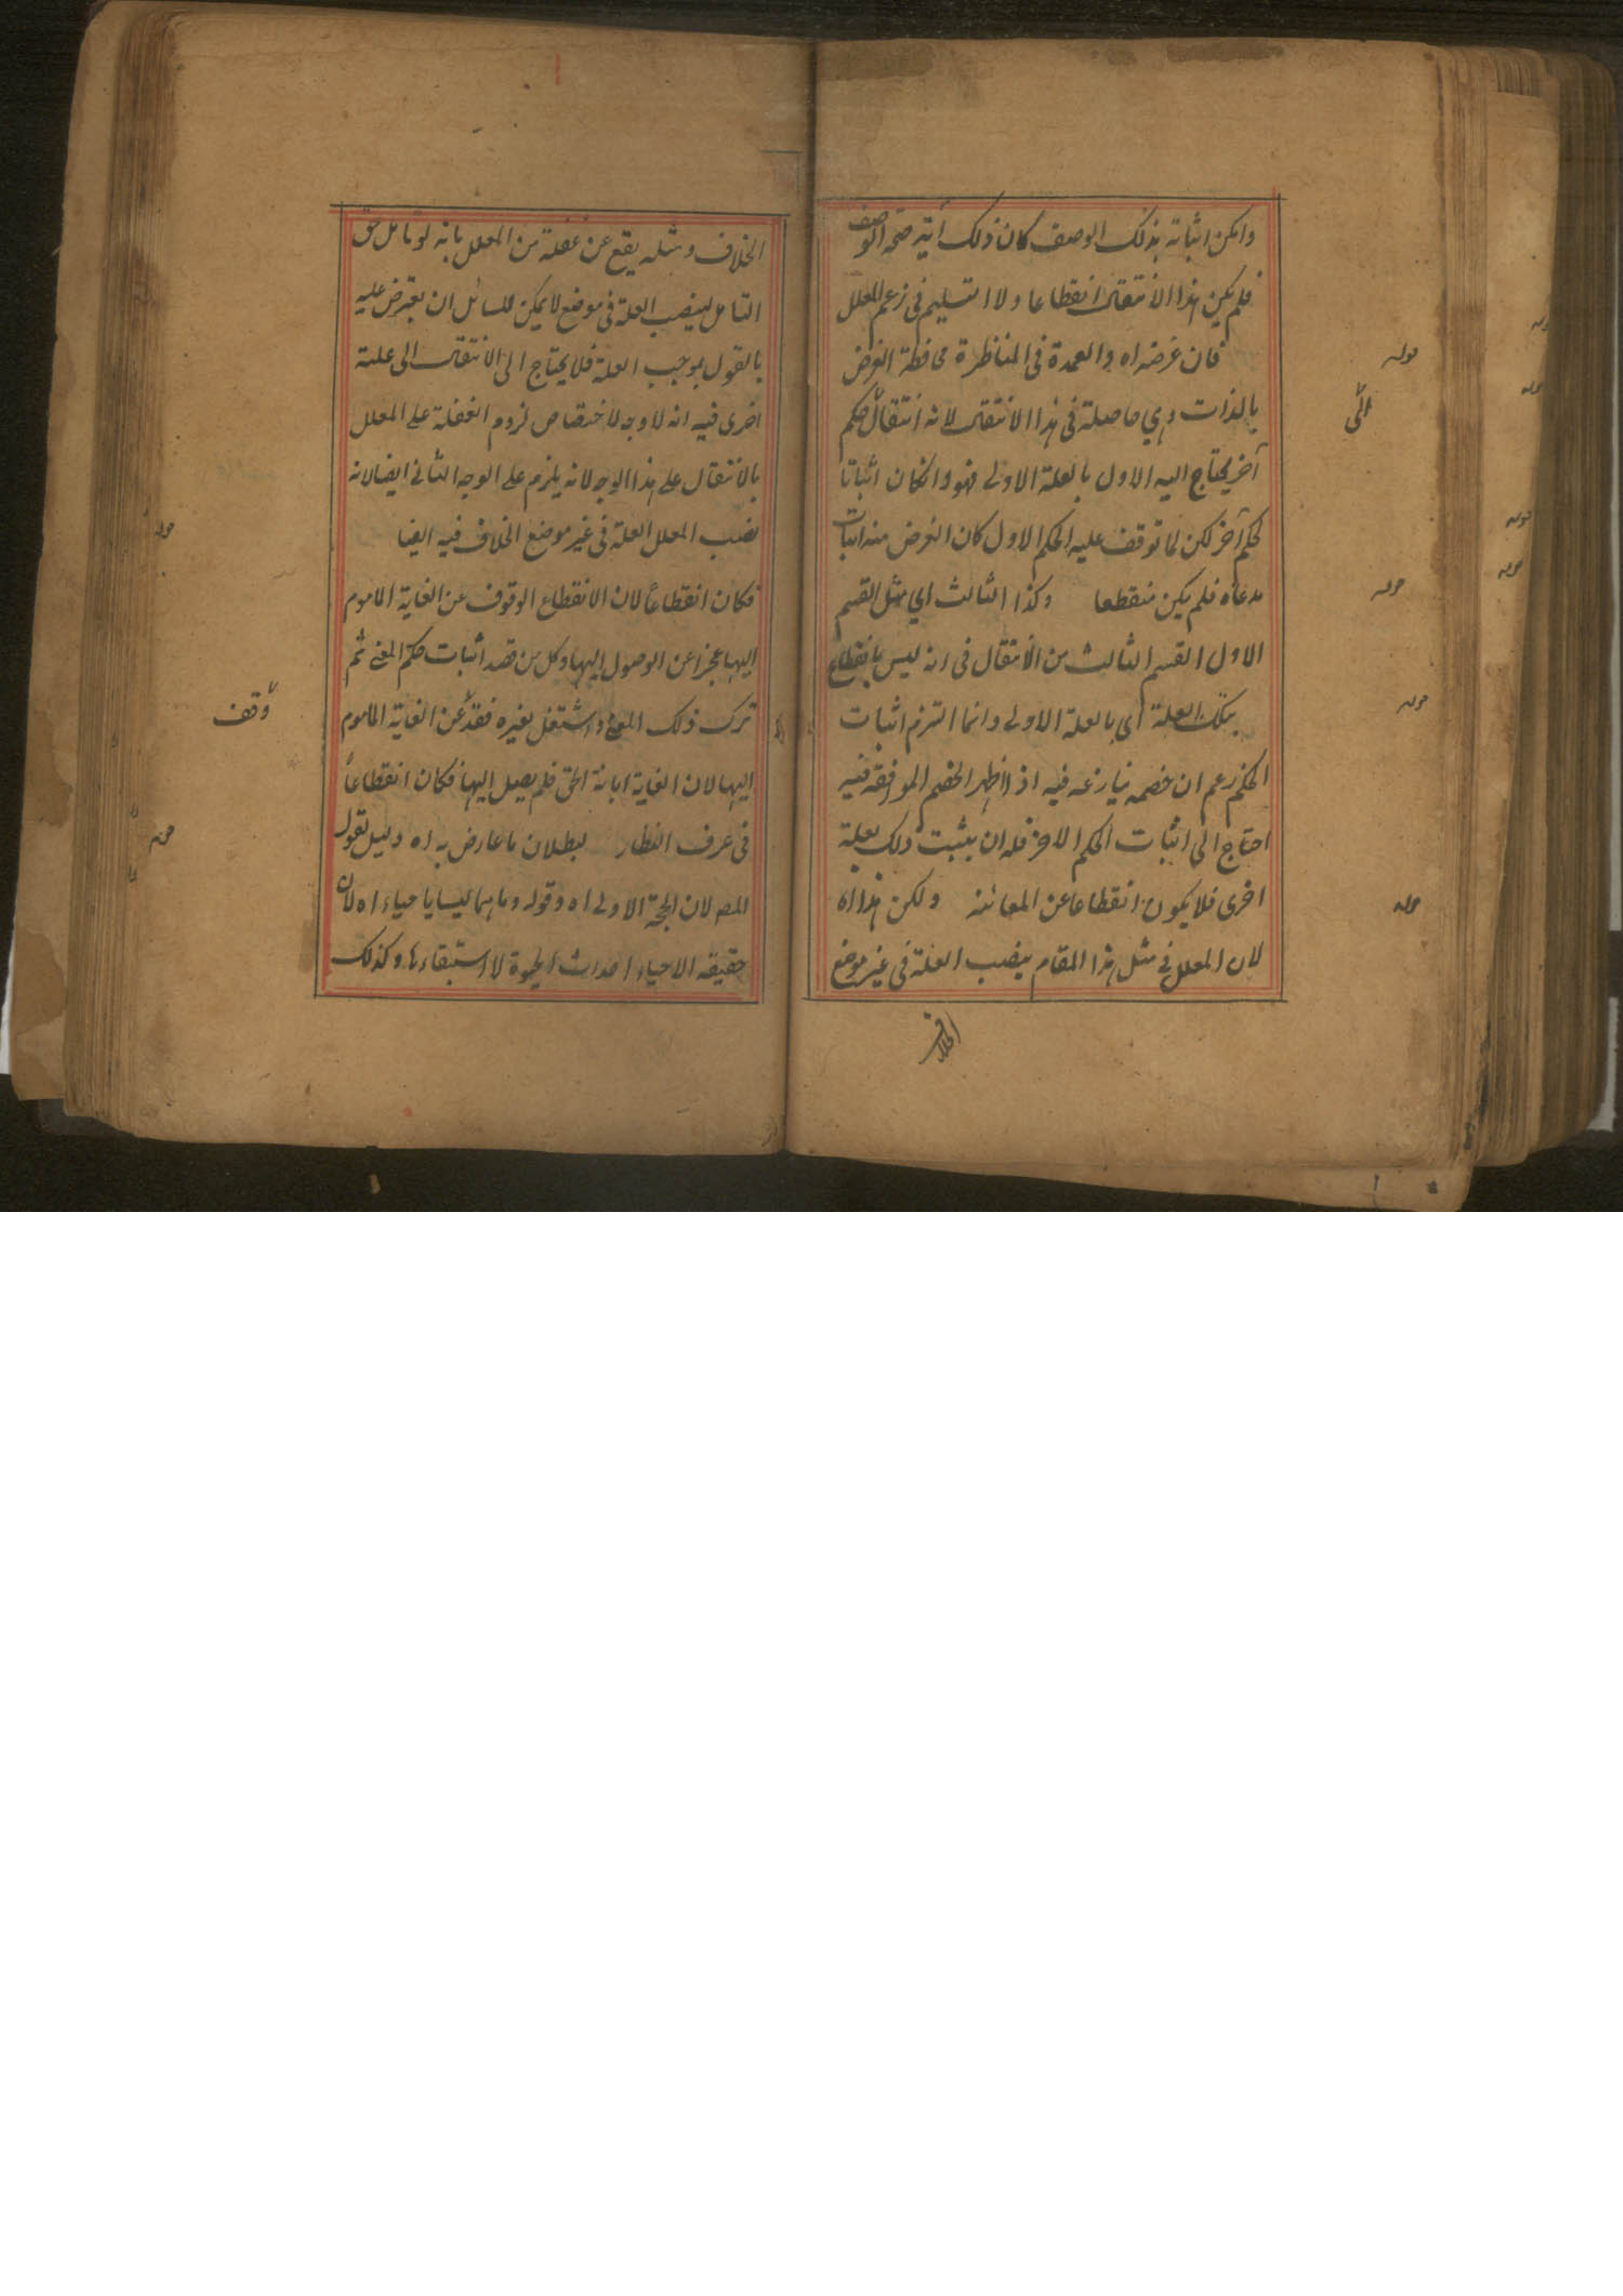 وامكن اثباته بذلك الوصف كان ذلك آية صحة الوصف
فلم يكن هذا الانتقال انقطاعا ولا التسليم فى زعم المعلل
فان غرضه اه والعمدة فى المناظرة محافظة الغرض
قوله
بالذات وهي حاصلة فى هذا الانتقال لانه انتقال حكم
الى
آخر يحتاج اليه الاول بالعلة الاولى فهو وان كان اثباتا
لحكم آخر لكن لما توقف عليه الحكم الاول كان الغرض منه اثبات
مدعاه فلم يكن منقطعا وكذا الثالث اي مثل القسم
قوله
الاول القسم الثالث من الانتقال فى انه ليس بانقطاع
بتلك العلة اى بالعلة الاولى وانما التزم اثبات
قوله
الحكم زعم ان خصمه ينازعه فيه اذ اظهر الخصم الموافقة فيه
احتاج الى اثبات الحكم الاخر فله ان يثبت ذلك بعلة
اخرى فلا يكون انقطاعا عن المعاينة ولكن هذا اه
قوله
لان المعلل فى مثل هذا المقام ينصب العلة فى غير موضع
الخلاف
الخلاف ومثله يقع عن غفلة من المعلل بانه لو تامل حق
التامل لينصب العلة فى موضع لا يمكن للسائل ان يعترض عليه
بالقول بموجب العلة فلا يحتاج الى الانتقال الى علة
اخرى فيه انه لا وجه لاختصاص لزوم الغفلة على المعلل
بالانتقال على هذا الوجه لانه يلزم على الوجه الثانى ايضا لانه
نصب المعلل العلة فى غير موضع الخلاف فيه ايضا
فكان انقطاعا لان الانقطاع الوقوف عن الغاية الماموم
قوله
اليها عجزا عن الوصول اليها وكل من قصد اثبات حكم المعنى ثم
ترك ذلك المعنى واشتغل بغيره فقد عن الغاية الماموم
وقف
اليها لان الغاية ابانة الحق فلم يصل اليها فكان انقطاعا
فى عرف النظار لبطلان ما عارض به اه دليل لقول
قوله
المص لان الحجة الاولى اه وقوله وهما ليسا باحياء اه لان
حقيقة الاحياء احداث الحيوة لا استبقاءها وكذلك